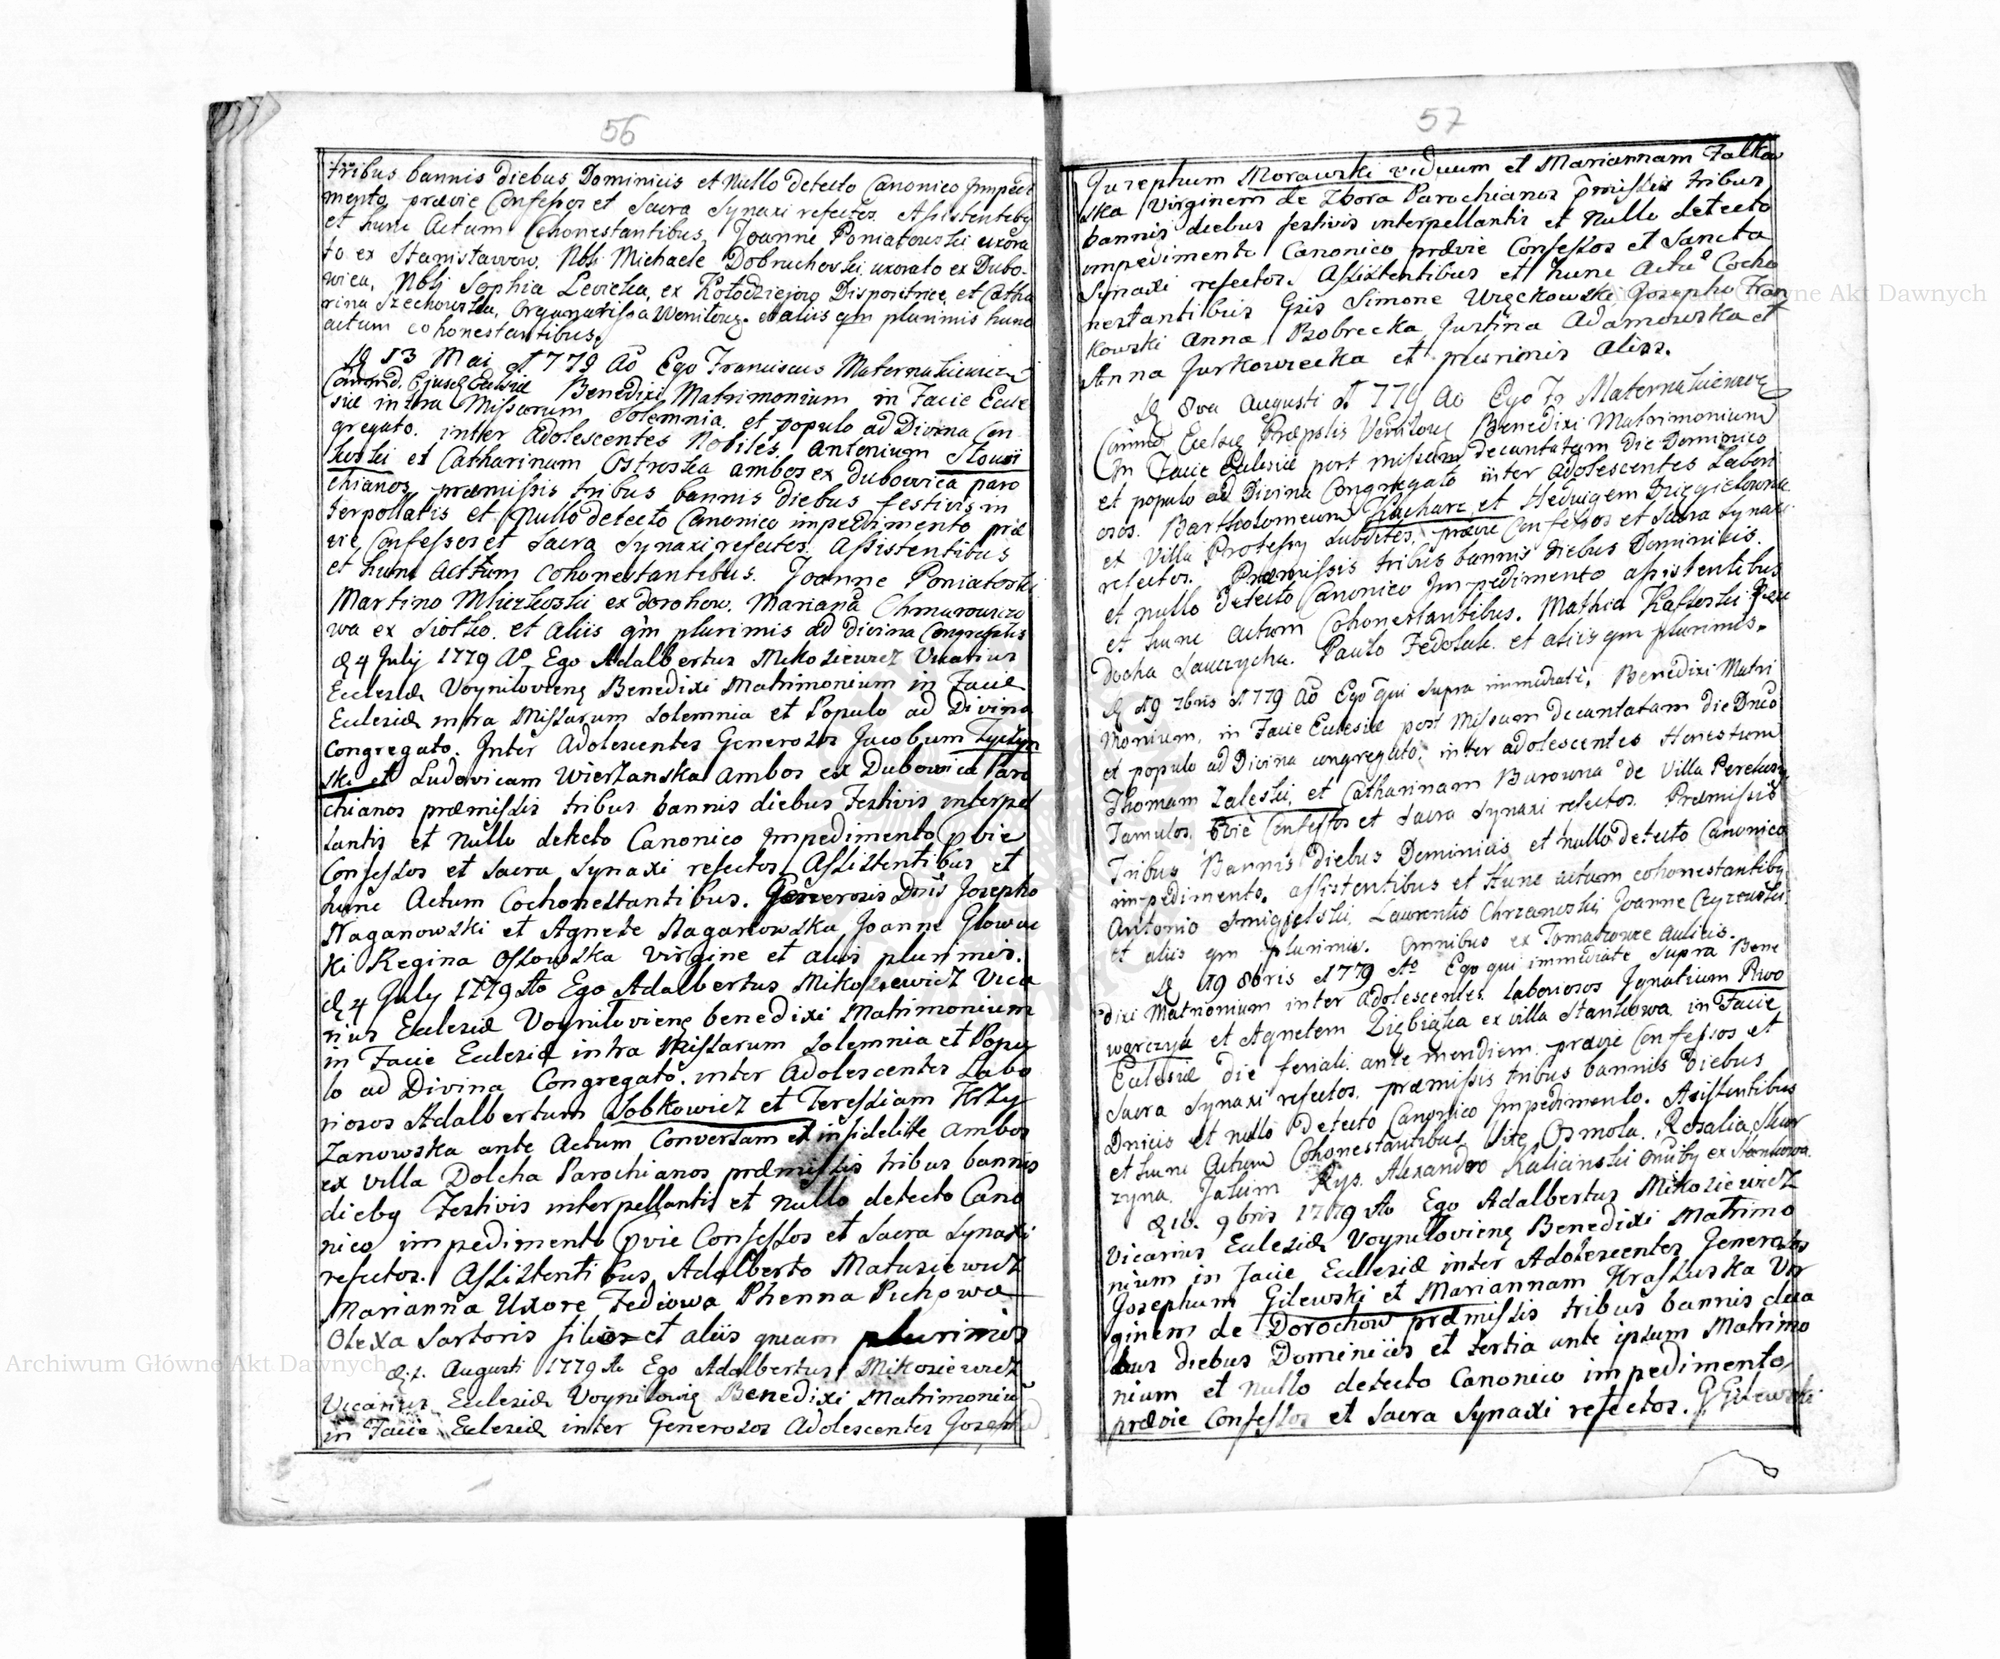 56
tribus bannis diebus Dominicis et Nullo detecto Canonico Impedi
mento, prævie Confessos et Sacra Synaxi refectos. Assistentibg
et hunc Actum Cohonestantibus, Joanne Poniatowski uxora
to ex Stanisławow. Nbli Michaele Dobruchovski, uxorato ex Dubo-
wica, Nblj Sophia Levicka, ex Kołodziejow Dispositrice, et Catha
rina Szechowska, Organarissa Wonilow. et aliis qm plurimis hunc
actum cohonestantibus.
D 13 Mai 1779 Ao Ego Franciscus Maternakiewicz
Commd. Ejusq Eccliæ Benedixi Matrimonium in Facie Eccle
siæ intra Missarum Solemnia, et populo ad Divina Con
gregato. inter Adolescentes Nobiles. Antonium Słowi
kowski et Catharinam Ostroska ambos ex Dubowica paro
chianos, præmissis tribus bannis diebus festivis in
terpollatis et Nullo detecto Canonico impedimento præ
vie, Confessos et Sacra Synaxi refectos. Assistentibus
et hunc acttum cohonestantibus. Joanne Poniatoski
Martino Mliczkoski ex dorohow. Mariana Chmurowiczo
wa ex siołko. et Aliis qm plurimis ad divina Congregatis
D 4 July 1779 Ao Ego Adalbertus Mikosiewicz Vicarius
Ecclesiæ Voyniloviens Benedixi Matrimonium in Facie
Eclesiæ intra Missarum solemnia et Populo ad Divina
Congregato. Inter Adolescentes Generosos Jacobum Tyszyn
ski et Ludovicam Wierzanska Ambos ex Dubowica Paro
chianos præmissis tribus bannis diebus Festivis interpel
lantis et Nullo detecto Canonico Impedimento pvie
Confessos et Sacra Synaxi refectos Assistentibus et
hunc Actum Cochonestantibus. Generosis Dnis Josepho
Naganowski et Agnete Naganowska Joanne Glowac
ki Regina Ossowska virgine et aliis plurimis.
D 4 July 1779 Ao Ego Adalbertus Mikosiewicz Vica
rius Ecclesiæ Voyniloviens benedixi Matrimonium
in Facie Eclesiæ intra Missarum Solemnia et Popu
lo ad Divina Congregato. inter Adolescentes Labo
riosos Adalbertum Sobkowicz et Teressiam Krzy
zanowska ante Actum Conversam et infidelitte ambos
ex villa Dolcha Parochianos præmissis tribus bannis
diebg Festivis interpellantis et Nullo detecto Cano
nico impedimento pvie Confessos et Sacra Synaxi
refectos. Assistentibus Adalberto Matusiewicz
Marianna Uxore Fediowa Phenna Puchowa
Olexa Sartoris filior et aliis quam plurimis
D. 1. Augusti 1779 Ao Ego Adalbertus Mikosiewicz
Vicarius Eclesiæ Voynilowi Benedixi Matrimoniu
in Facie Eclesiæ inter Generosos Adolescentes Joseph
57
Jusephum Morawski viduum et Mariannam Falkow
ska Virginem de Zbora Parochianos pmissis tribus
bannis diebus festivis interpellantis et Nullo detecto
impedimento Canonico prævie Confessos et Sancta
Synaxi refectos. Assistentibus et hunc Actu Cocho
nestantibus Gsis Simone Więckowski Josepho Fran
kowski Anna Bobrecka Justina Adamowska et
Anna Jurkowiecka et plurimis aliis.
D 8va Augusti 1779 Ao Ego Fr Maternakiewicz
Comnd Eclsiæ Præpsltis Vonilow Benedixi Matrimonium
In Facie Eclesiæ post missam decantatam Die Dominico
et populo ad Divina Congregato inter adolescentes Labori
osos. Bartholomeum Kucharz et Hedvigem
ex Villa Protessy subditos, prævie Confessos et Sacra Synaxi
refectos. Præmissis tribus bannis diebus Dominicis.
et nullo detecto Canonico Impedimento assistentibus
et hunc actum Cohonestantibus. Mathia
docha Sawerycha. Paulo Fedoluk. et aliis qm plurimis.
D 19 7bris 1779 Ao Ego qui supra immediate, Benedixi Matri
monium, in Facie Ecclesiæ post Missam decantatam die Dnico
et populo ad Divina congregato; inter adolescentes Honestum
Thomam Zaleski, et Catharinam Barowna de Villa
Famulos, pvie Confessos et Sacra Synaxi refectos. Præmissis
Tribus Bannis Diebus Dominicis et nullo detecto Canonico
impedimento. assistentibus et Hunc actum cohonestantibg
Antonio Smigielski, Laurentio Chrzanoski Joanne Czyzewski
et aliis qm plurimis. Omnibus ex Tomaszowce aulicis.
D 19 8bris 1779 Ao Ego qui immediate Supra Bene
dixi Matrionium inter adolescentes laboriosos Ignatium Piwo
warczyk et Agnetem Zięblicka ex villa Stankowa in Facie
Eclesiæ die feriali ante meridiem. prævie Confessos et
Sacra Synaxi refectos, præmissis tribus bannis Diebus
Dnicis et nullo Detecto Canonico Impedimento. Assistentibus
et hunc Actum Cohonestantibus Vito Osmola. Rosalia Skor
zyna. Jakim Rys. Alexandro Kalicinski omibg ex Stankowa.
D 16. 9bris 1779 Ao Ego Adalbertus Mikosiewicz
Vicarius Eclesiæ Voyniloviens Benedixi Matrimo
nium in Facie Ecclesiæ inter Adolescentes Generosos
Josephum Gilewski et Mariannam Krassuska Vir
ginem de Dorochow præmissis tribus bannis dua
bus diebus Dominicis et tertia ante ipsum Matrimo
nium et Nullo detecto Canonico impedimento,
prævie Confessos et Sacra Synaxi refectos. G Gilewski
Archiwum Główne Akt Dawnych
Archiwum Główne Akt Dawnych